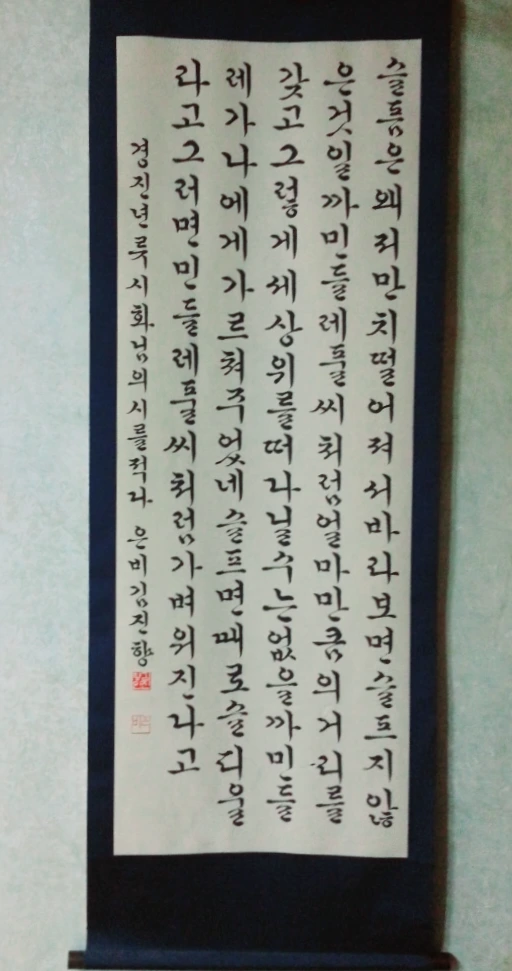 슬픔은왜저만치떨어져서바라보면슬프지않
은것일까민들레풀씨처럼얼마만큼의거리를
갖고그렇게세상위를떠다닐수는없을까민들
레가나에게가르쳐주었네슬프면때로슬피울
라고그러면민들레풀씨처럼가벼워진다고
경진년류시화님의시를적다 은비김진향